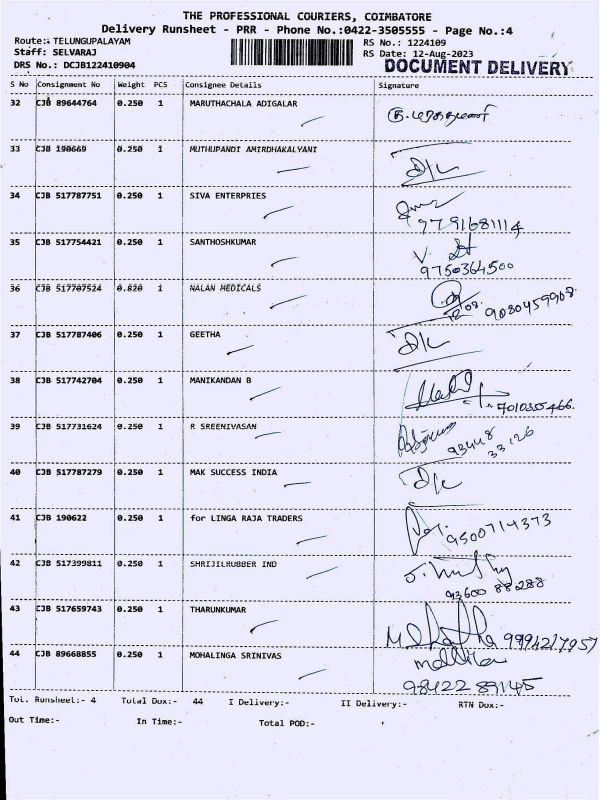 THE PROFESSIONAL COURIERS, COIMBATORE
Delivery Runsheet - PRR - Phone No.:0422-3505555 - Page No.:4
Route:- TELUNGUPALAYAM RS No.: 1224109
Staff: SELVARAJ RS Date: 12-Aug-2023
DRS No.: DCJB122410904 DOCUMENT DELIVERY
S No Consignment No Weight PCS Consignee Details Signature
32 CJB 89644764 0.250 1 MARUTHACHALA ADIGALAR
33 CJB 190669 0.250 1 MUTHUPANDI AMIRDHAKALYANI D/L
34 CJB 517787751 0.250 1 SIVA ENTERPRIES
9791681114
35 CJB 517754421 0.250 1 SANTHOSHKUMAR
9750364500
36 CJB 517707524 0.820 1 NALAN MEDICALS
9080459908
37 CJB 517787406 0.250 1 GEETHA D/L
38 CJB 517742704 0.250 1 MANIKANDAN B
39 CJB 517731624 0.250 1 R SREENIVASAN
93448
33126
40 CJB 517787279 0.250 1 MAK SUCCESS INDIA D/L
41 CJB 190622 0.250 1 for LINGA RAJA TRADERS 9500714373
42 CJB 517399811 0.250 1 SHRIJILRUBBER IND
93600 88288
43 CJB 517659743 0.250 1 THARUNKUMAR
44 CJB 89668855 0.250 1 MOHALINGA SRINIVAS
98422 89145
Tot. Runsheet:- 4 Total Dox:- 44 I Delivery:- II Delivery:- RTN Dox:-
Out Time:- In Time:- Total POD:-